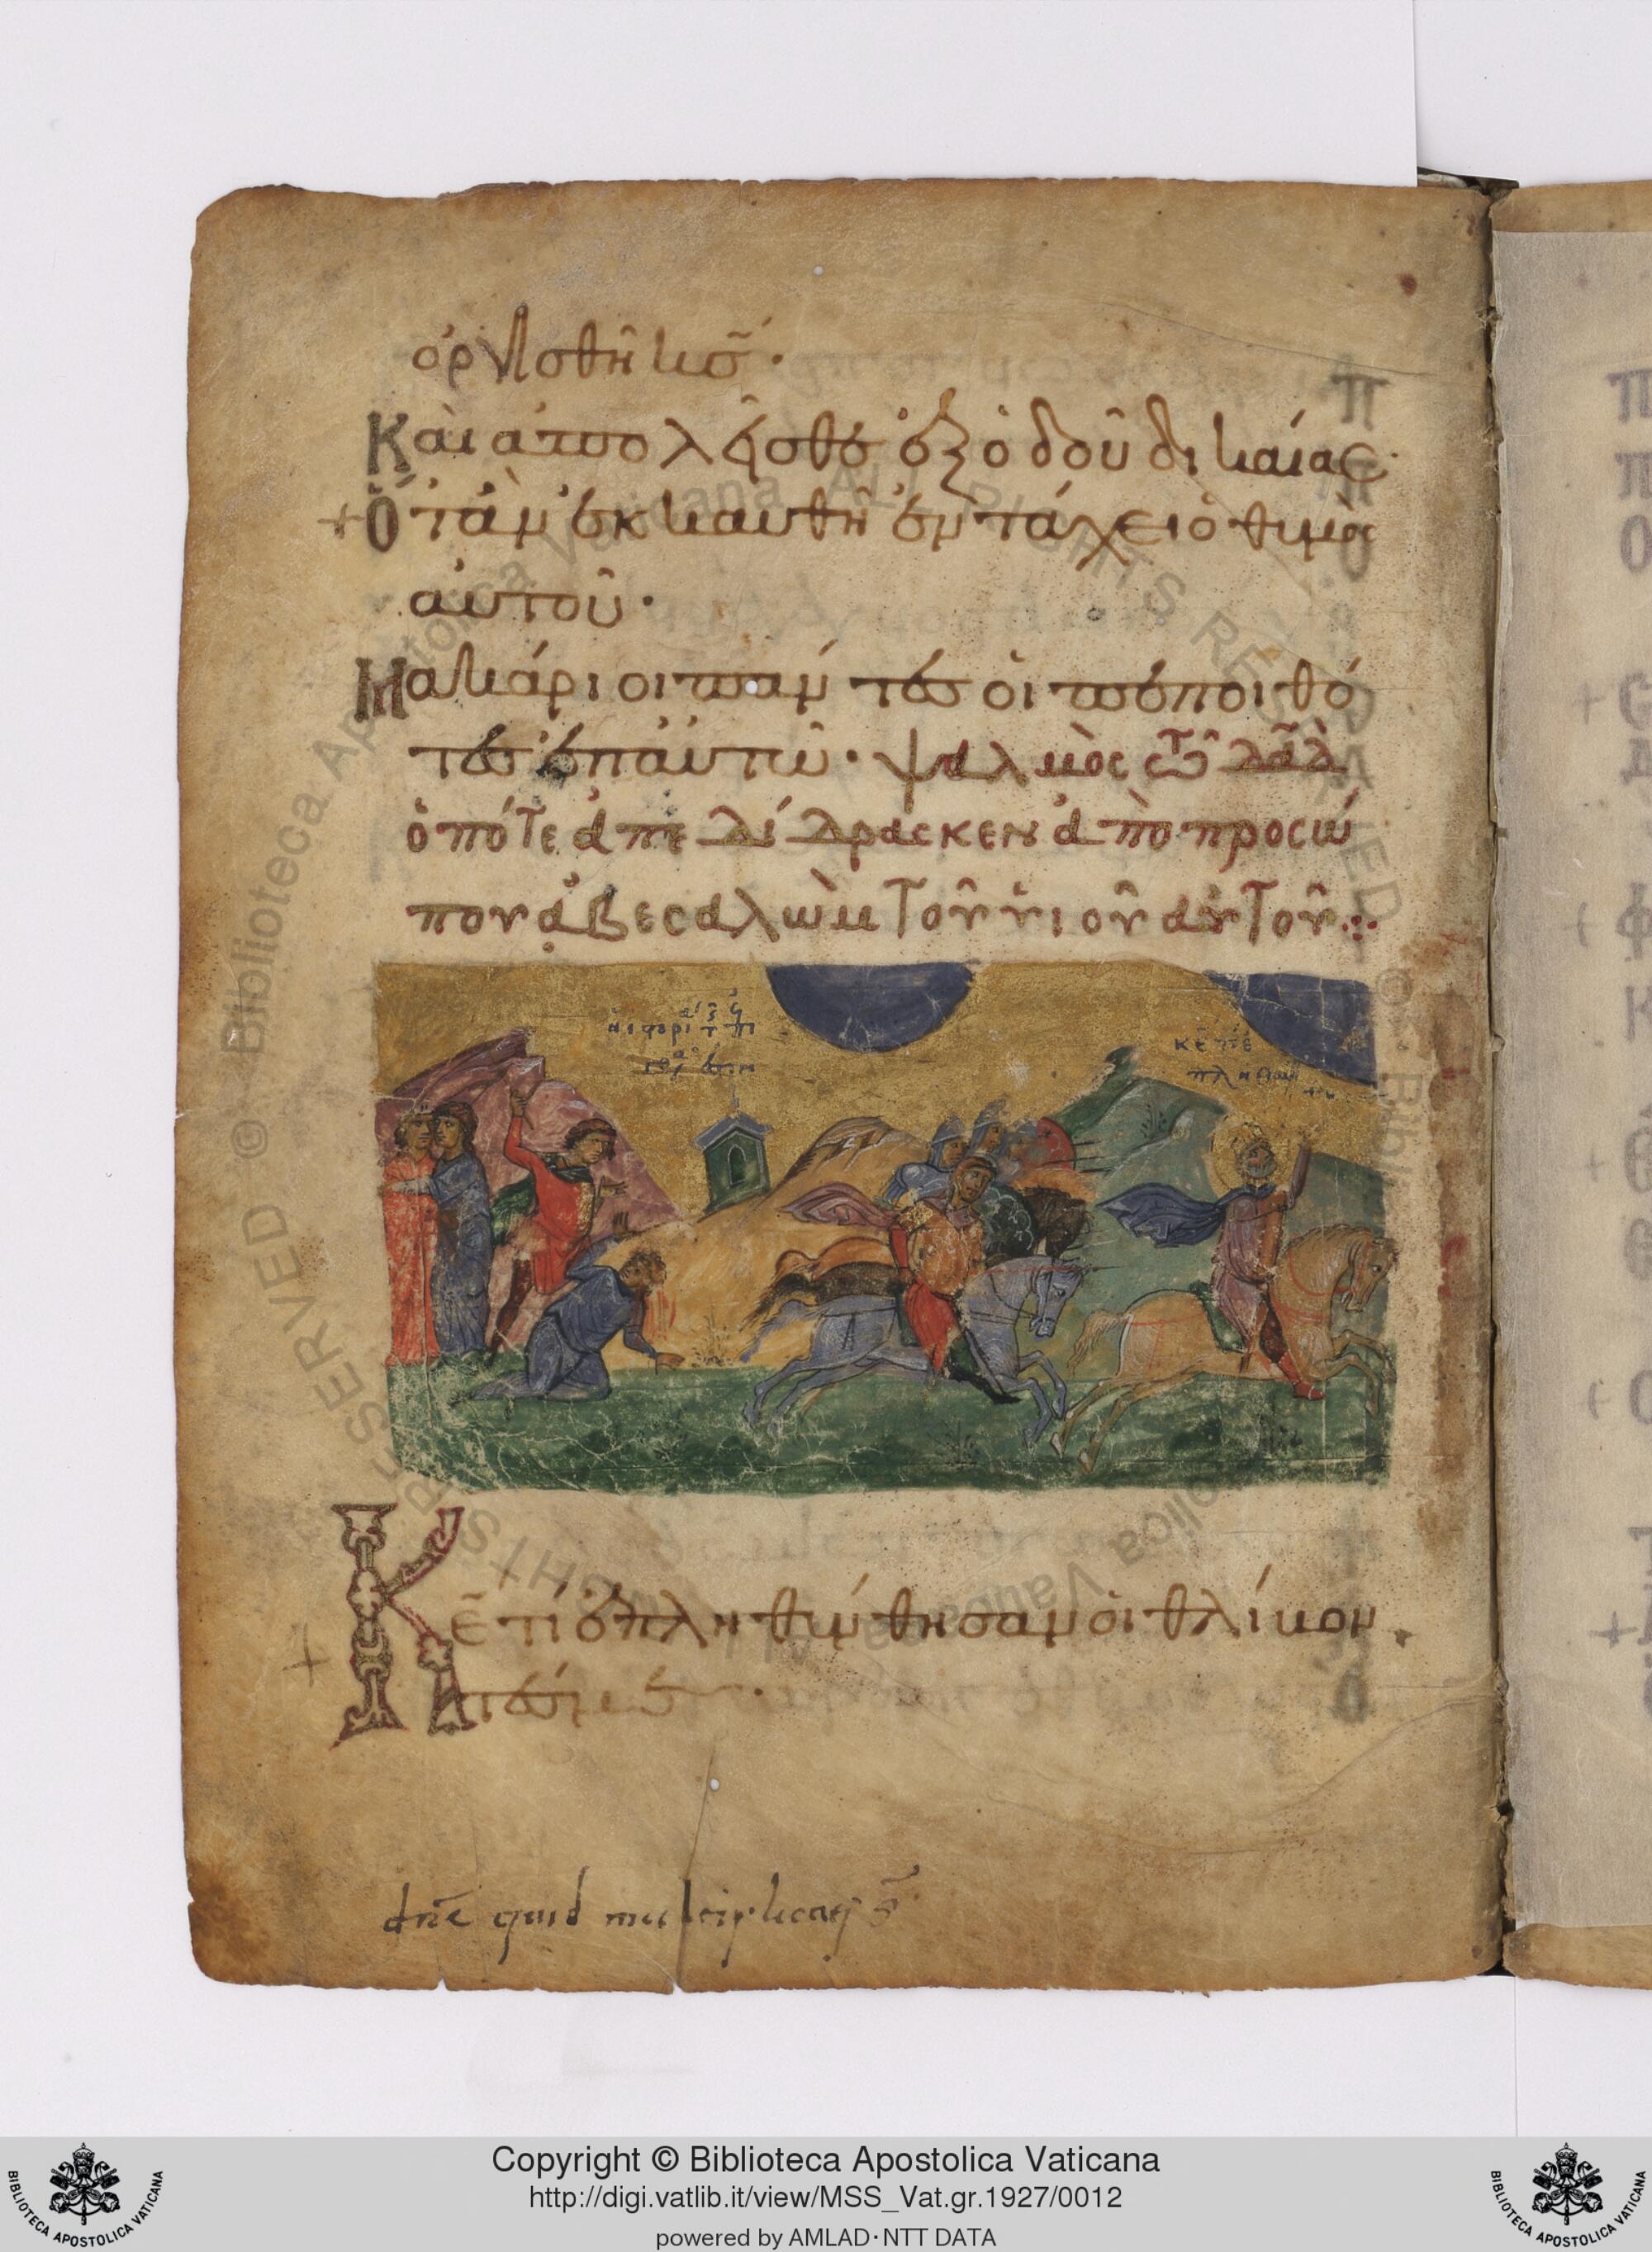 ὀργισθῆ κς̄·
Καὶ ἀπολεῖσθε ἐξ ὁδοῦ δικαίας·
Ὅταν ἐκκαυθῆ ἐν τάχει ὁ θυμὸς
αὐτοῦ·
Μακάριοι πάντες οἱ πεποιθό
τες ἐπ αὐτῶ· ψαλμὸς τῶ δᾱδ
ὁπότε ἀπεδίδρασκεν ἀπὸ προσώ
που ἀβεσαλὼμ τοῦ υἱοῦ αὐτοῦ
κε̄ τί ἐ
πληθυν
Κε̄ τί ἐπληθύνθησαν οἱ θλίβον
τές με·
dn̄e quid multiplicati s̄
Copyright © Biblioteca Apostolica Vaticana
http://digi.vatlib.it/view/MSS_Vat.gr.1927/0012
powered by AMLAD·NTT DATA
BIBLIOTECA APOSTOLICA VATICANA
BIBLIOTECA APOSTOLICA VATICANA